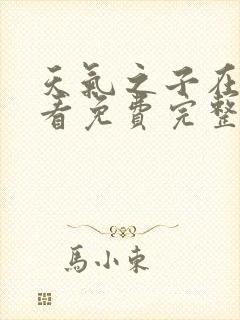 天氣之子在
看免費完整
馬小東